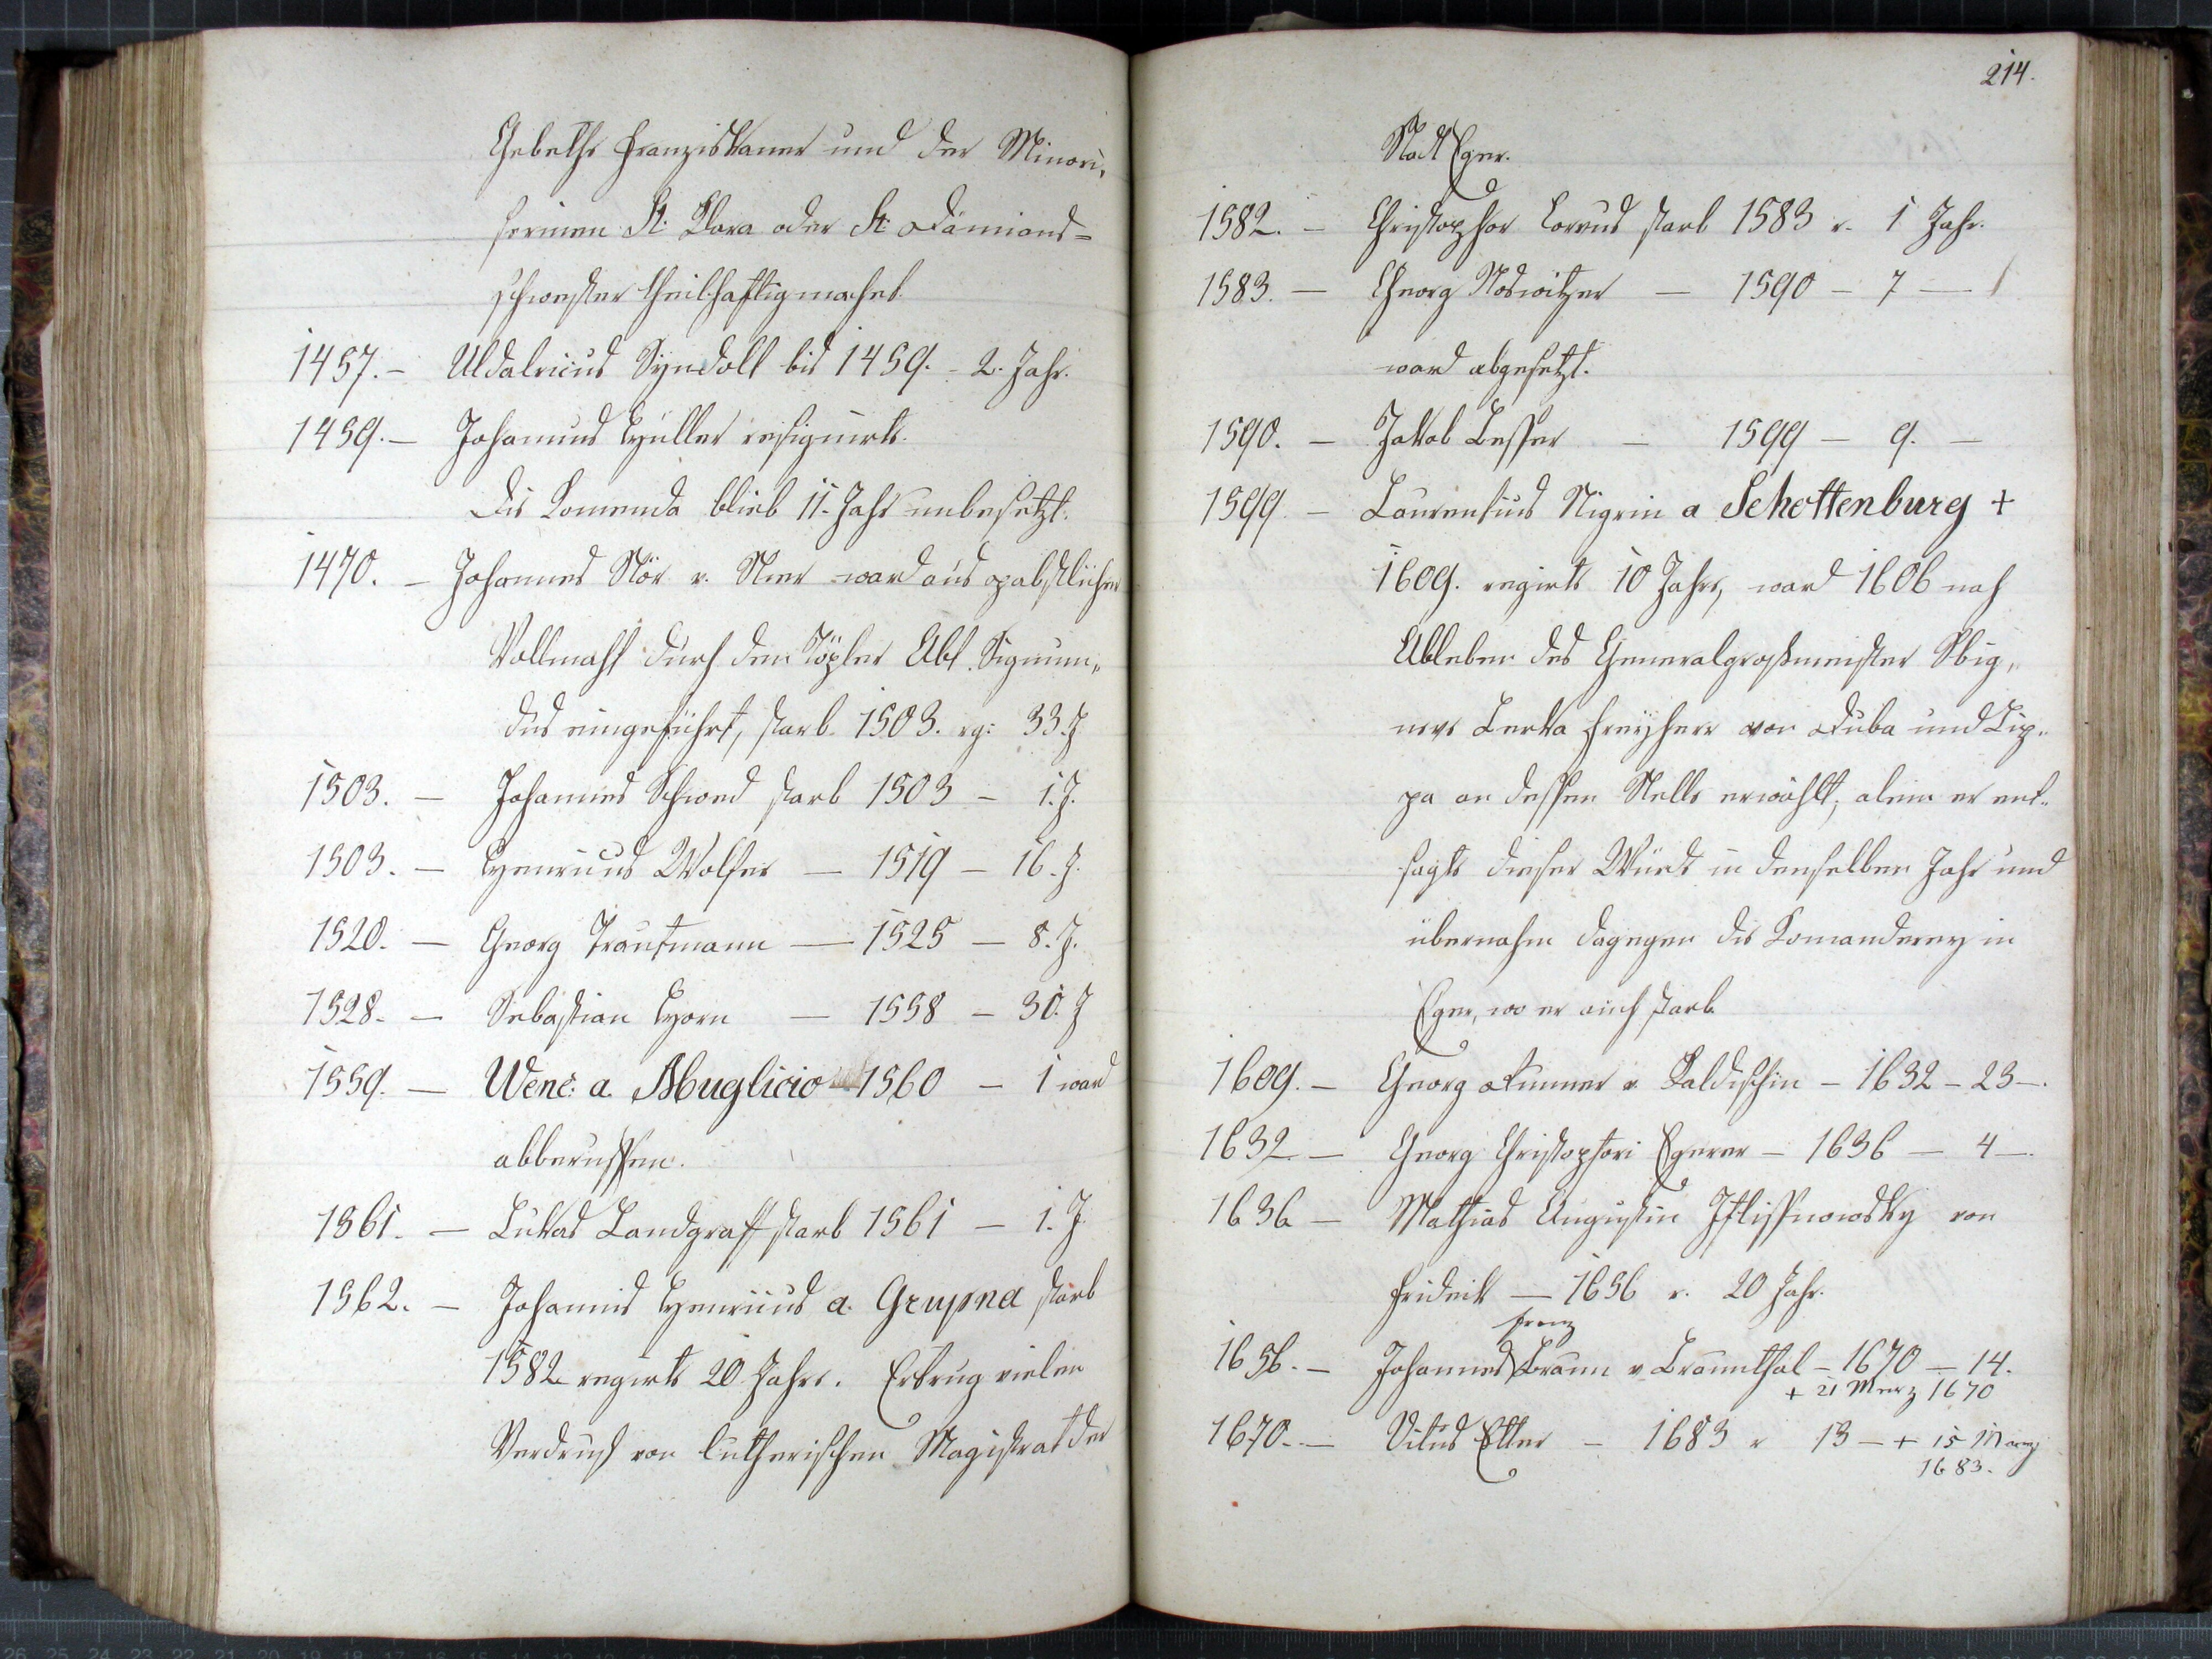 Gebethe Franziskaner und der Minori,
serinen St: Klara oder St: Damians=
schwester theilhaftig machet.
1457. – Uldalricus Syndoll bis 1459. – 2. Jahr.
1459. – Johannes Hüller resignirte.
Die Komenda blieb 11. Jahr unbesetzt.
1470. – Johannes Stör v. Stier ward aus pabstlicher
Vollmacht durch den Töpler Abt. Sigmun„
dus eingeführt, starb 1503. rg: 33. J
1503. – Johannes Schwed starb 1503 – 1. J.
1503. – Henricus Wolfer – 1519 – 16. J.
1520. – Georg Trautmann – 1525 – 8. J.
1528. – Sebastian Horn – 1558 – 30. J
1559. – Wenc: a. Muglicio – 1560 – 1 ward
abberuffen.
1561. – Lukas Landgraff starb 1561 – 1. J.
1562. – Johannes Henricus a. Grupna starb
1582 regirte 20 Jahre. Ertrug vielen
Verdruß von lutherischen Magistrat der
214.
Stadt Eger.
1582. – Christophor Corvus starb 1583 r. 1 Jahr.
1583. – Georg Roswitzer – 1590 – 7 –
ward abgesetzt.
1590. – Jakob Lesser – 1599 – 9. –
1599. – Laurentius Nigrin a Schottenburg +
1609. regirte 10 Jahre, ward 1606 nach
Ableben des Generalgroßmeister Sbig„
neus Berka Freyherr von Duba und Lip„
pa an dessen Stelle erwählt, alein er ent„
sagte dieser Würde in denselben Jahr und
übernahm dagegen die Komanderey in
Eger, wo er auch starb.
1609. – Georg Dumner v. Kaldischin – 1632 – 23 –.
1632 – Georg Christophori Egerer – 1636 – 4 –.
1636 – Mathias Augustin von
Frideck – 1656 r. 20 Jahr.
Franz
1656. – Johannes Braun v. Braunthal – 1670 – 14.
+ 21 Merz 1670
1670. – Vitus Etter – 1683 r 13 – + 15 Marz
1683.